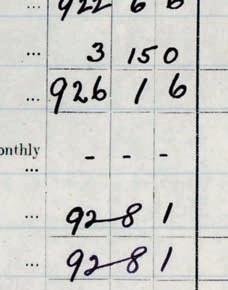 922 6 6
... 3 15 0
... 926 1 6
onthly
... - - -
... 92 8 1
... 92 8 1